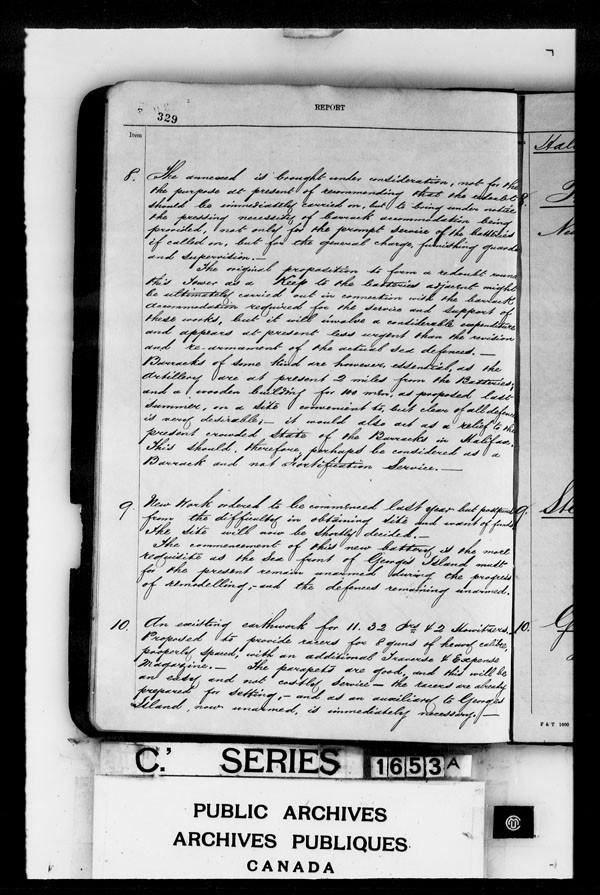 329
REPORT
Item
8. The annexed is brought under consideration, not for the
the purpose at present of recommending that the
should be immediately carried on, but to bring under notice
the pressing necessity of barrack accommodation being
provided, not only for the prompt service of the batteries
if called on, but for the general charge, furnishing guards
and supervision. —
The original proposition to form a redoubt round
this Tower as a Keep to the batteries adjacent might
be ultimately carried out in connection with the barrack
accommodation required for the service and support of
these works, but it will involve a considerable expenditure
and appears at present less urgent than the revision
and re-armament of the actual sea defences. —
Barracks of some kind are however, essential, as the
Artillery are at present 2 miles from the Batteries,
and a wooden building for 100 men, as proposed last
Summer, on a site convenient to, but clear of all defence
is very desirable, — it would also act as a relief to the
present crowded state of the Barracks in Halifax.
This should, therefore, perhaps be considered as a
Barrack and not Fortification Service. —
9. New Work ordered to be commenced last year but postponed
from the difficulty in obtaining site and want of funds
The site will now be shortly decided. —
The commencement of this new battery is the more
requisite as the Sea front of Georges Island must
for the present remain unarmed during the progress
of remodelling, — and the defences remaining unarmed.
10. An existing earthwork for 11. 32 Prs & 2 Howitzers.
Proposed to provide racers for 8 guns of heavy calibre,
properly spaced, with an additional Traverse & Expense
Magazine. — The parapets are good, and this will be
an easy and not costly service — the racers are already
prepared for setting, — and as an auxiliary to Georges
Island, now unarmed, is immediately necessary. —
8.
9.
10.
P & T 1000
C.' SERIES 1653A
PUBLIC ARCHIVES
ARCHIVES PUBLIQUES
CANADA